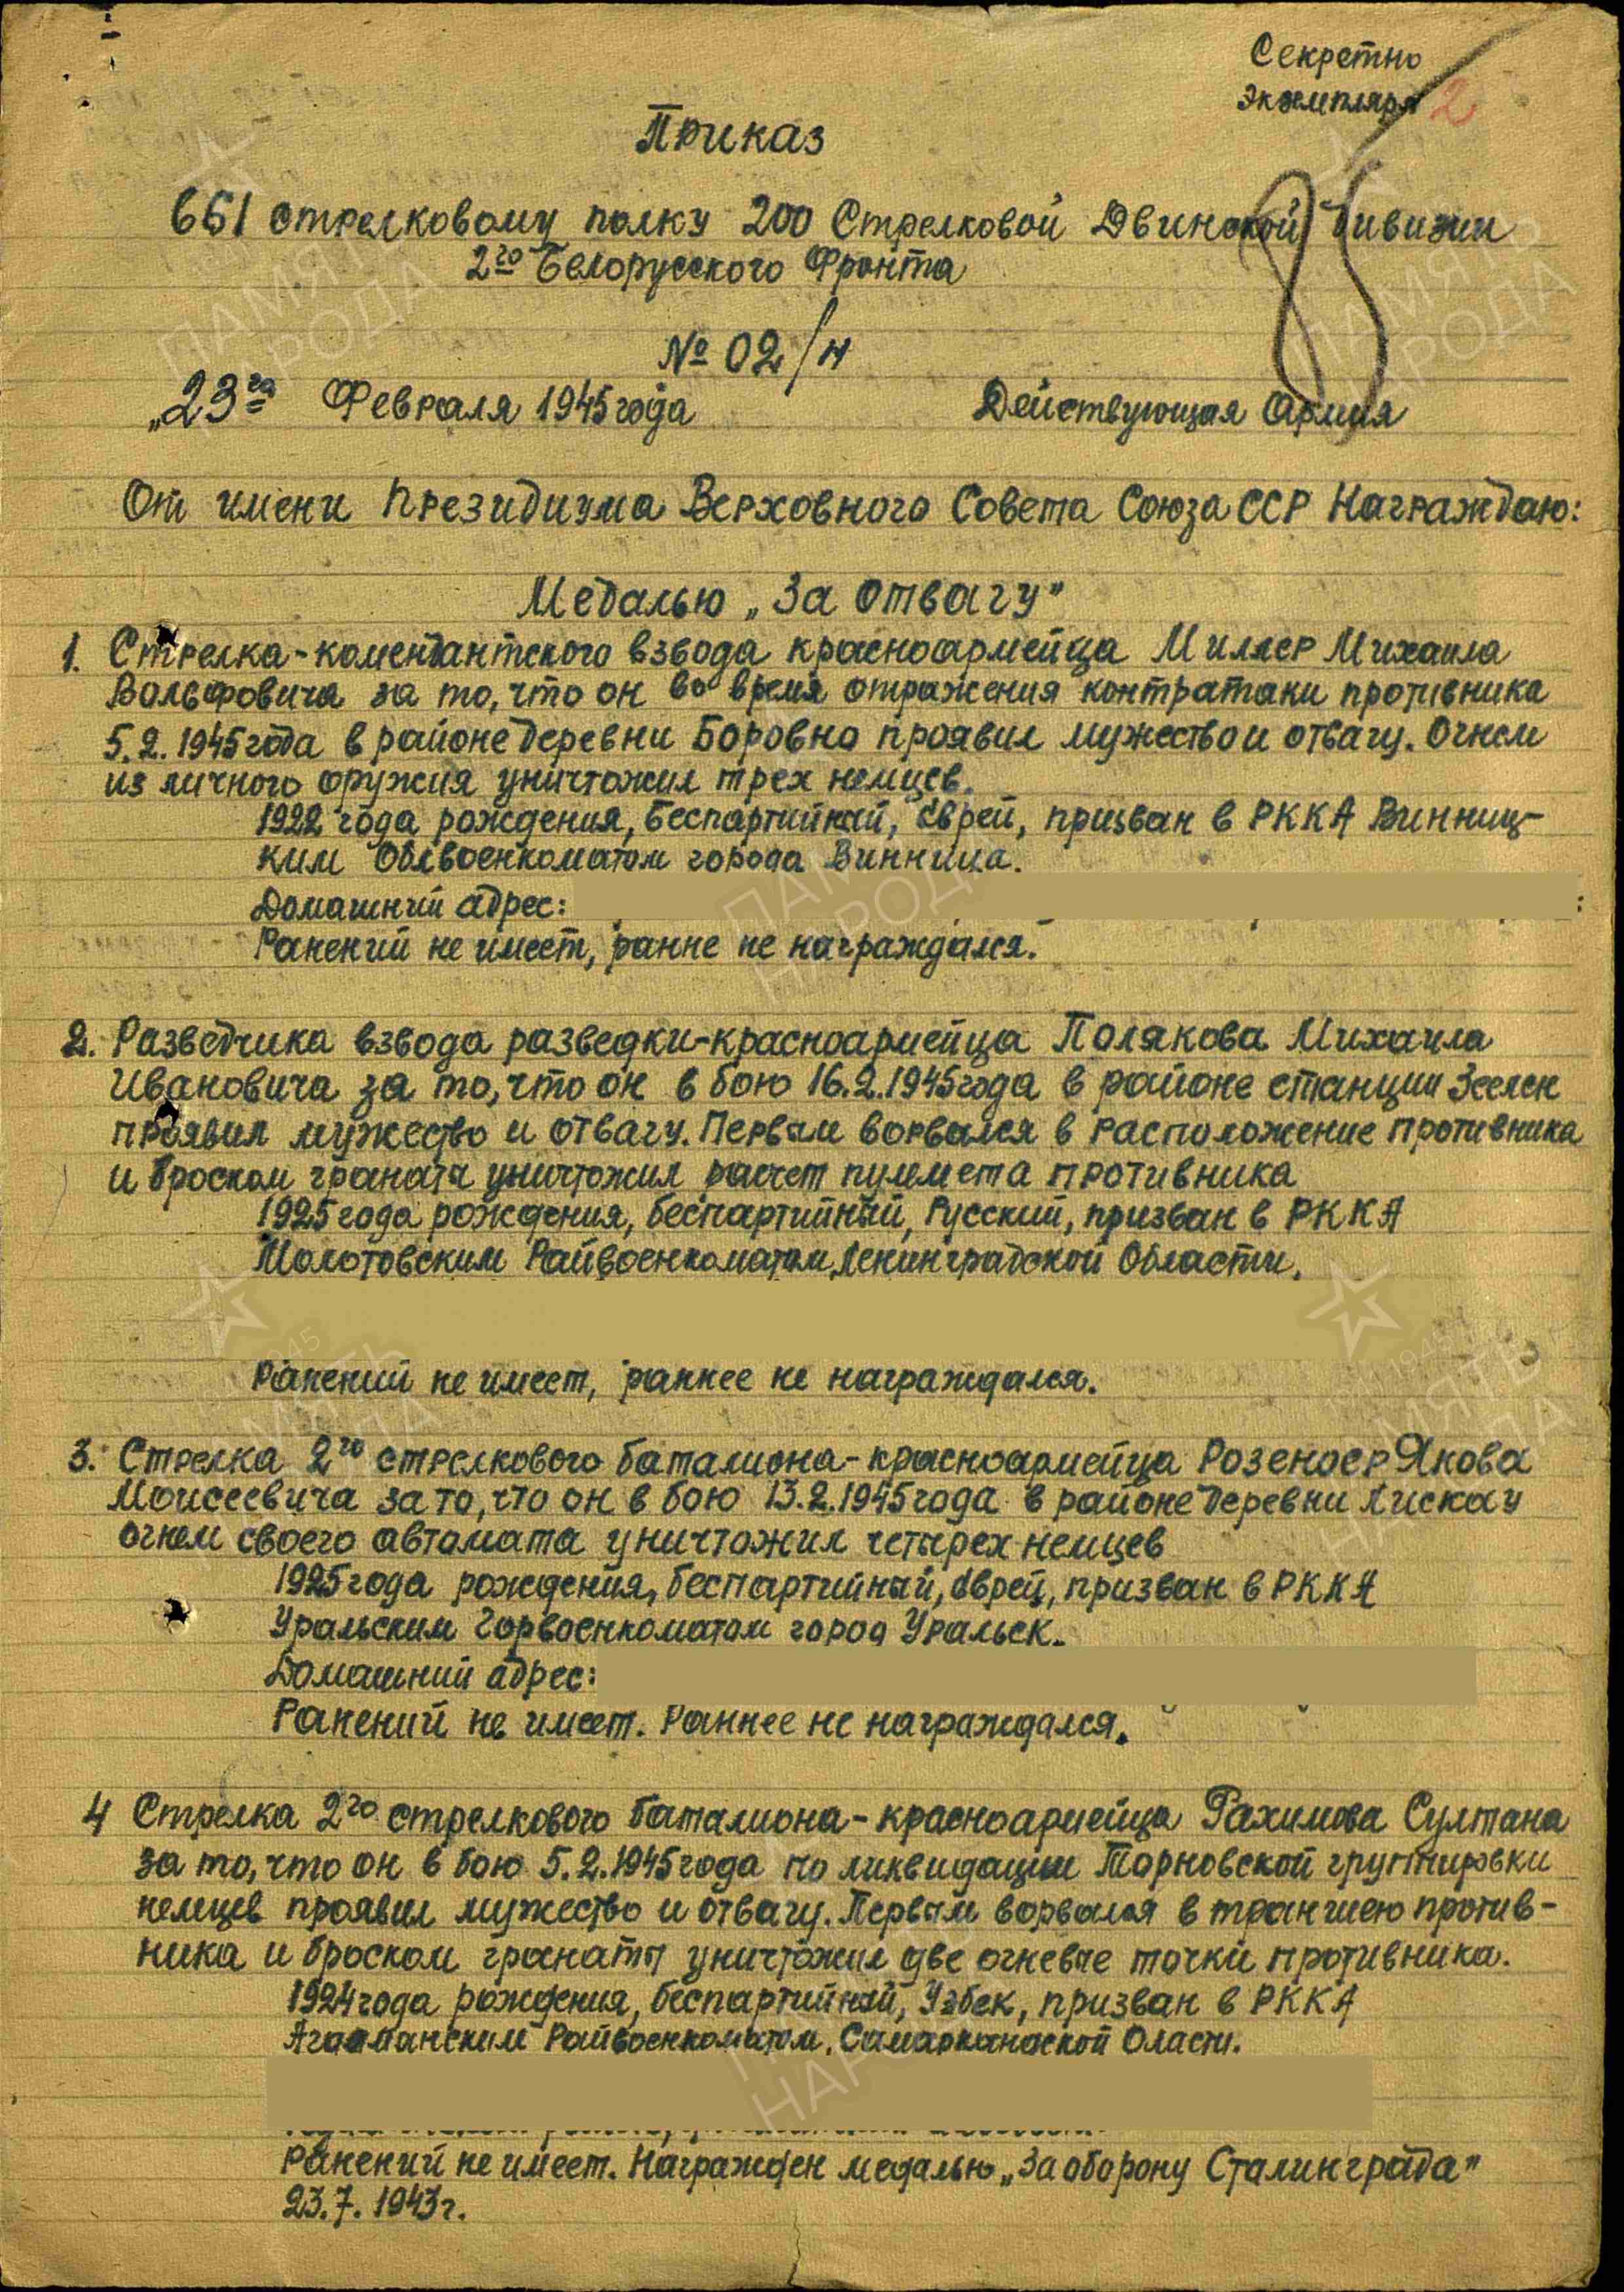 Секретно
Экземпляр 2
Приказ
661 стрелковому полку 200 Стрелковой Двинской Дивизии
2го Белорусского Фронта
№ 02/н
„23го Февраля 1945 года Действующая Армия
От имени Президиума Верховного Совета Союза ССР Награждаю:
Медалью „За отвагу"
1. Стрелка-комендантского взвода красноармейца Миллер Михаила
Вольфовича за то, что он во время отражения контратаки противника
5.2.1945 года в районе деревни Боровно проявил мужество и отвагу. Огнем
из личного оружия уничтожил трех немцев.
1922 года рождения, беспартийный, Еврей, призван в РККА Винниц-
ким Облвоенкоматом города Винница.
Домашний адрес:
Ранений не имеет, ранне не награждался.
2. Разведчика взвода разведки-красноармейца Полякова Михаила
Ивановича за то, что он в бою 16.2.1945 года в районе станции Зеелен
проявил мужество и отвагу. Первым ворвался в расположение противника
и броском гранаты уничтожил расчет пулемета противника
1925 года рождения, беспартийный, Русский, призван в РККА
Молотовским Райвоенкоматом Ленинградской Области.
Ранений не имеет, раннее не награждался.
3. Стрелка 2го стрелкового баталиона-красноармейца Розеноер Якова
Моисеевича за то, что он в бою 13.2.1945 года в районе деревни Лискау
огнем своего автомата уничтожил четырех немцев
1925 года рождения, беспартийный, Еврей, призван в РККА
Уральским Горвоенкоматом город Уральск.
Домашний адрес:
Ранений не имеет. Раннее не награждался.
4 Стрелка 2го стрелкового баталиона-красноармейца Рахимова Султана
за то, что он в бою 5.2.1945 года по ликвидации Торновской группировки
немцев проявил мужество и отвагу. Первым ворвался в траншею против-
ника и броском гранаты уничтожил две огневые точки противника.
1924 года рождения, беспартийный, Узбек, призван в РККА
Райвоенкоматом, Самаркандской Оласти.
Ранений не имеет. Награжден медалью „За оборону Сталинграда"
23.7.1943г.
ПАМЯТЬ
НАРОДА